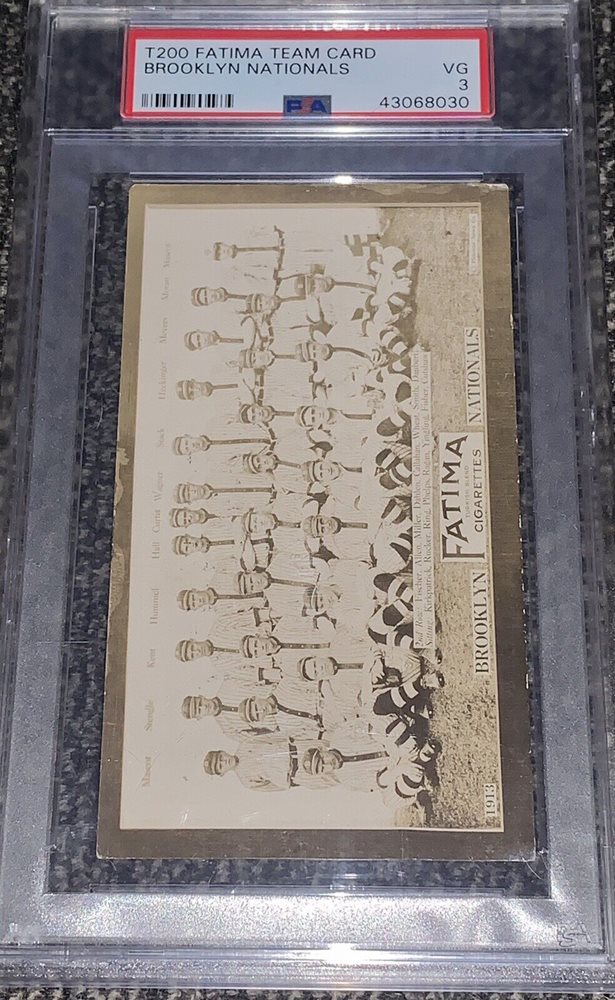 T200 FATIMA TEAM CARD
BROOKLYN NATIONALS
VG
3
PSA
43068030
Mascot Stengle Kent Hummel Hall Curtis Wagner Stack Heckinger Meyers Moran Mascot
2nd Row: Fischer, Allen, Miller, Dahlen, Callahan, Wheat, Smith, Daubert
Sitting: Kirkpatrick, Rucker, Ring, Phelps, Ragan, Yingling, Fisher, Cutshaw
1913
BROOKLYN
FATIMA
TURKISH BLEND
CIGARETTES
NATIONALS